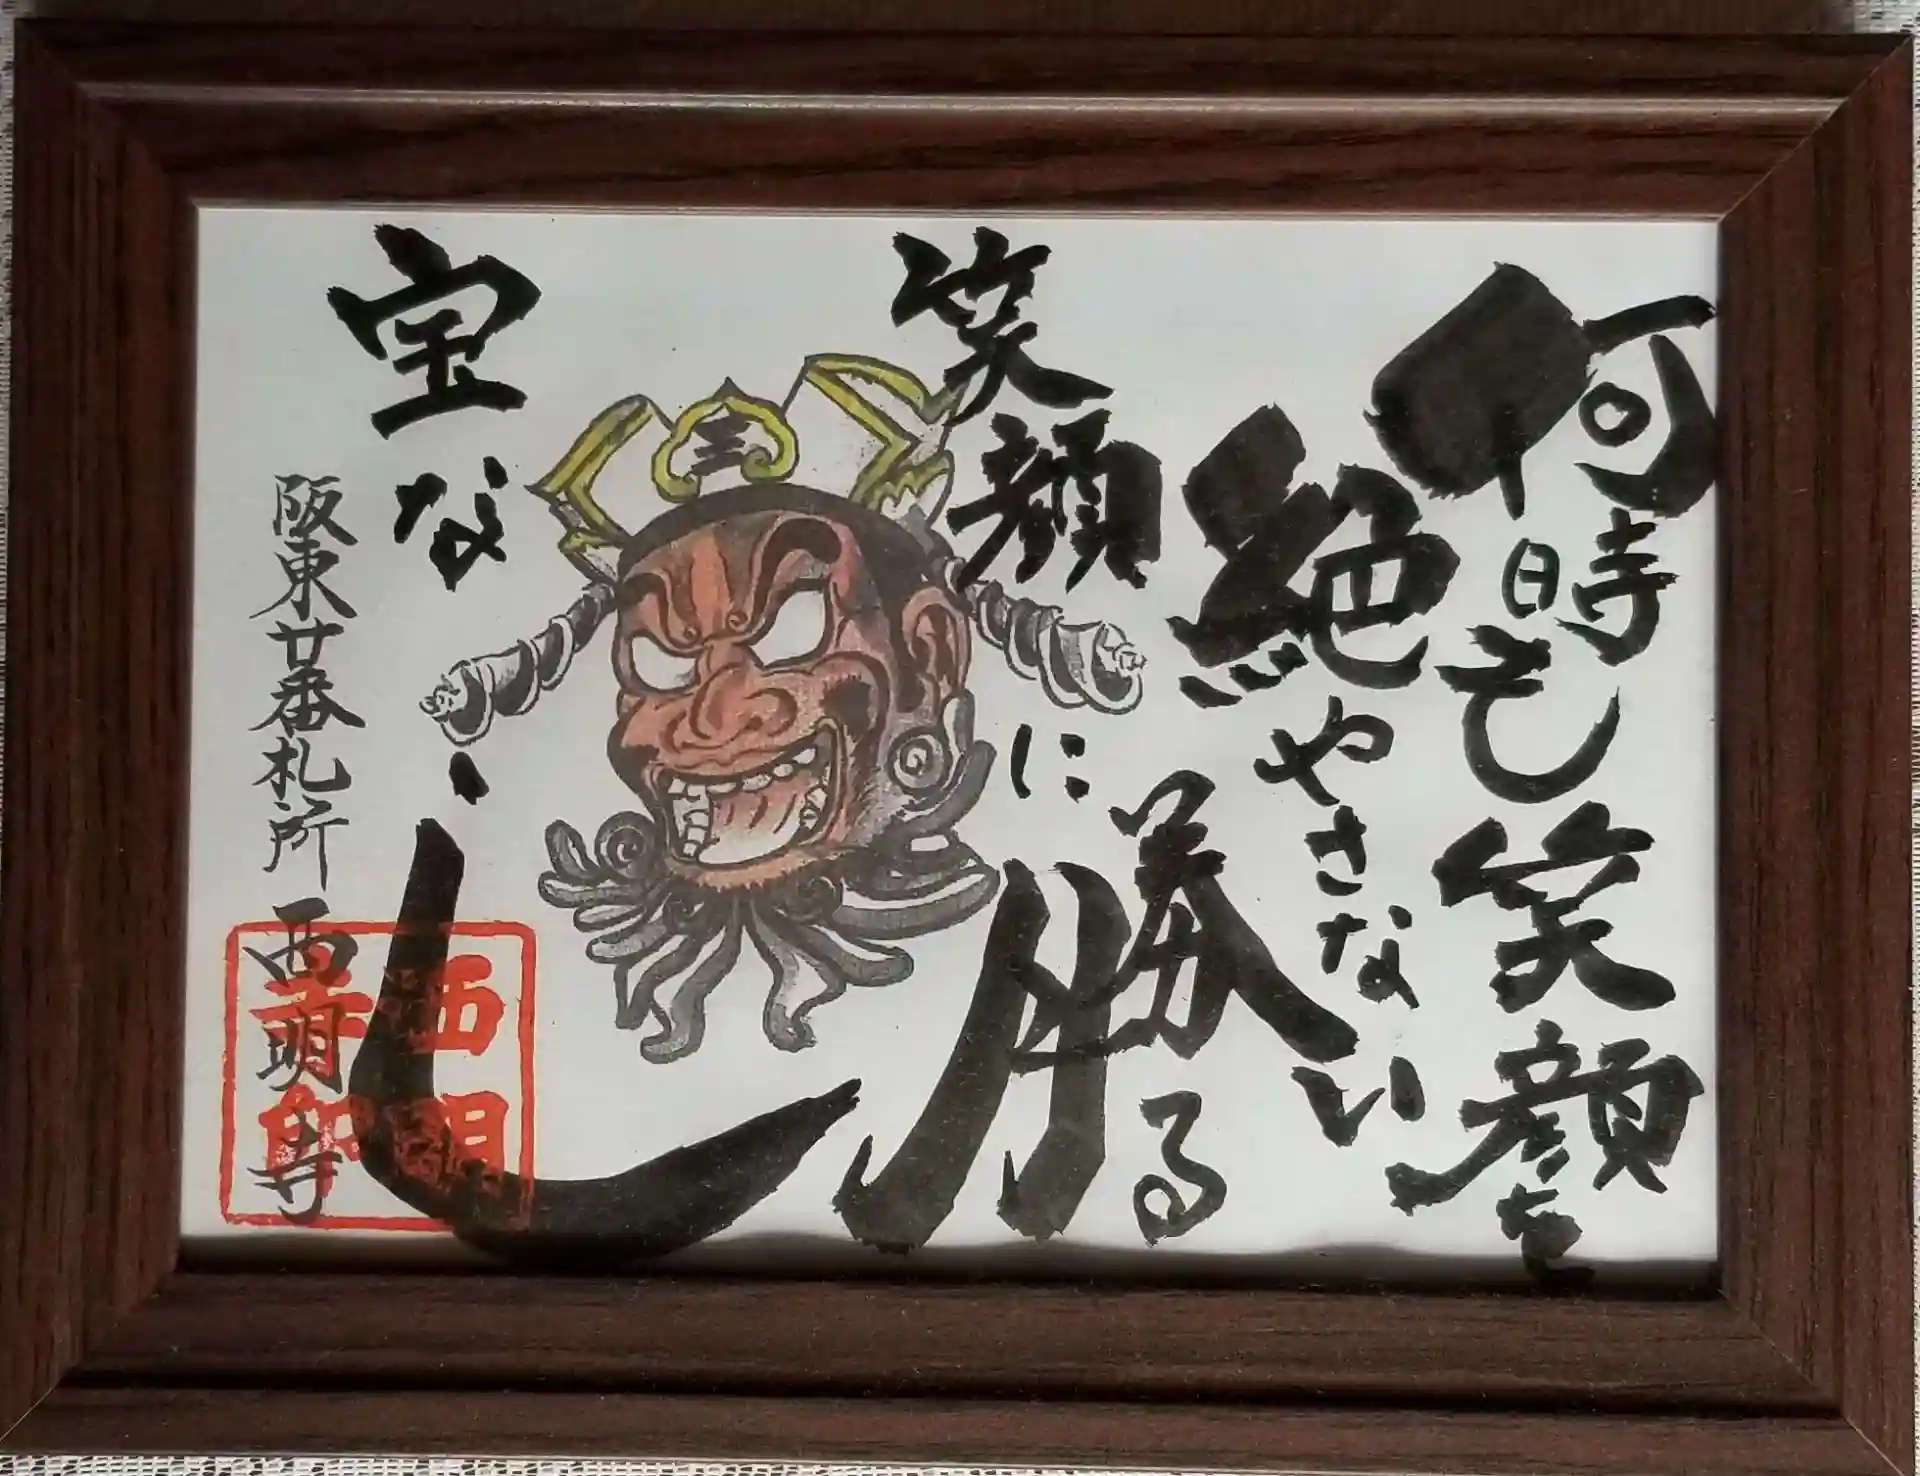 何時も笑顔を
絶やさない
笑顔に勝る
宝なし
三
阪東廿番札所 西明寺
西明
寺印